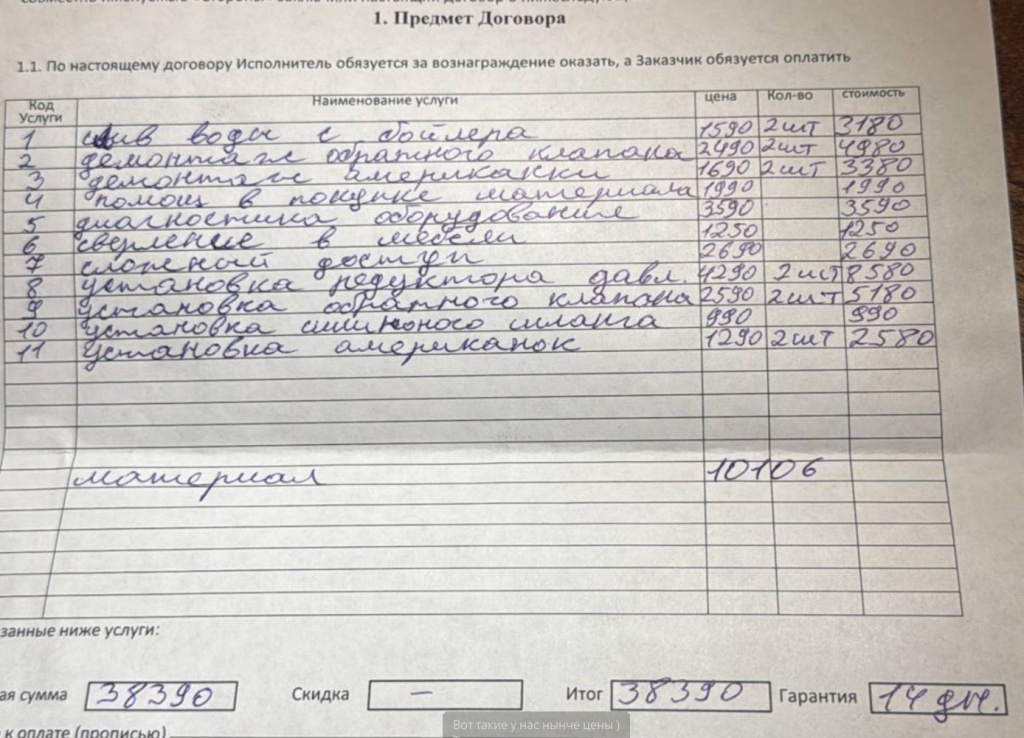 1. Предмет Договора
1.1. По настоящему договору Исполнитель обязуется за вознаграждение оказать, а Заказчик обязуется оплатить
Код Услуги Наименование услуги цена Кол-во стоимость
1 слив воды с бойлера 1590 2шт 3180
2 демонтаж обратного клапана 2490 2шт 4980
3 демонтаж американки 1690 2шт 3380
4 помощ в покупке материала 1990 1990
5 диагностика оборудование 3590 3590
6 сверление в мебели 1250 1250
7 сложный доступ 2690 2690
8 установка редуктора давл. 4290 2шт 8580
9 установка обратного клапана 2590 2шт 5180
10 установка шланга 990 990
11 установка американок 1290 2шт 2580
материал 10106
занные ниже услуги:
ая сумма 38390 Скидка — Итог 38390 Гарантия 14 дн.
к оплате (прописью)
Вот такие у нас нынче цены )